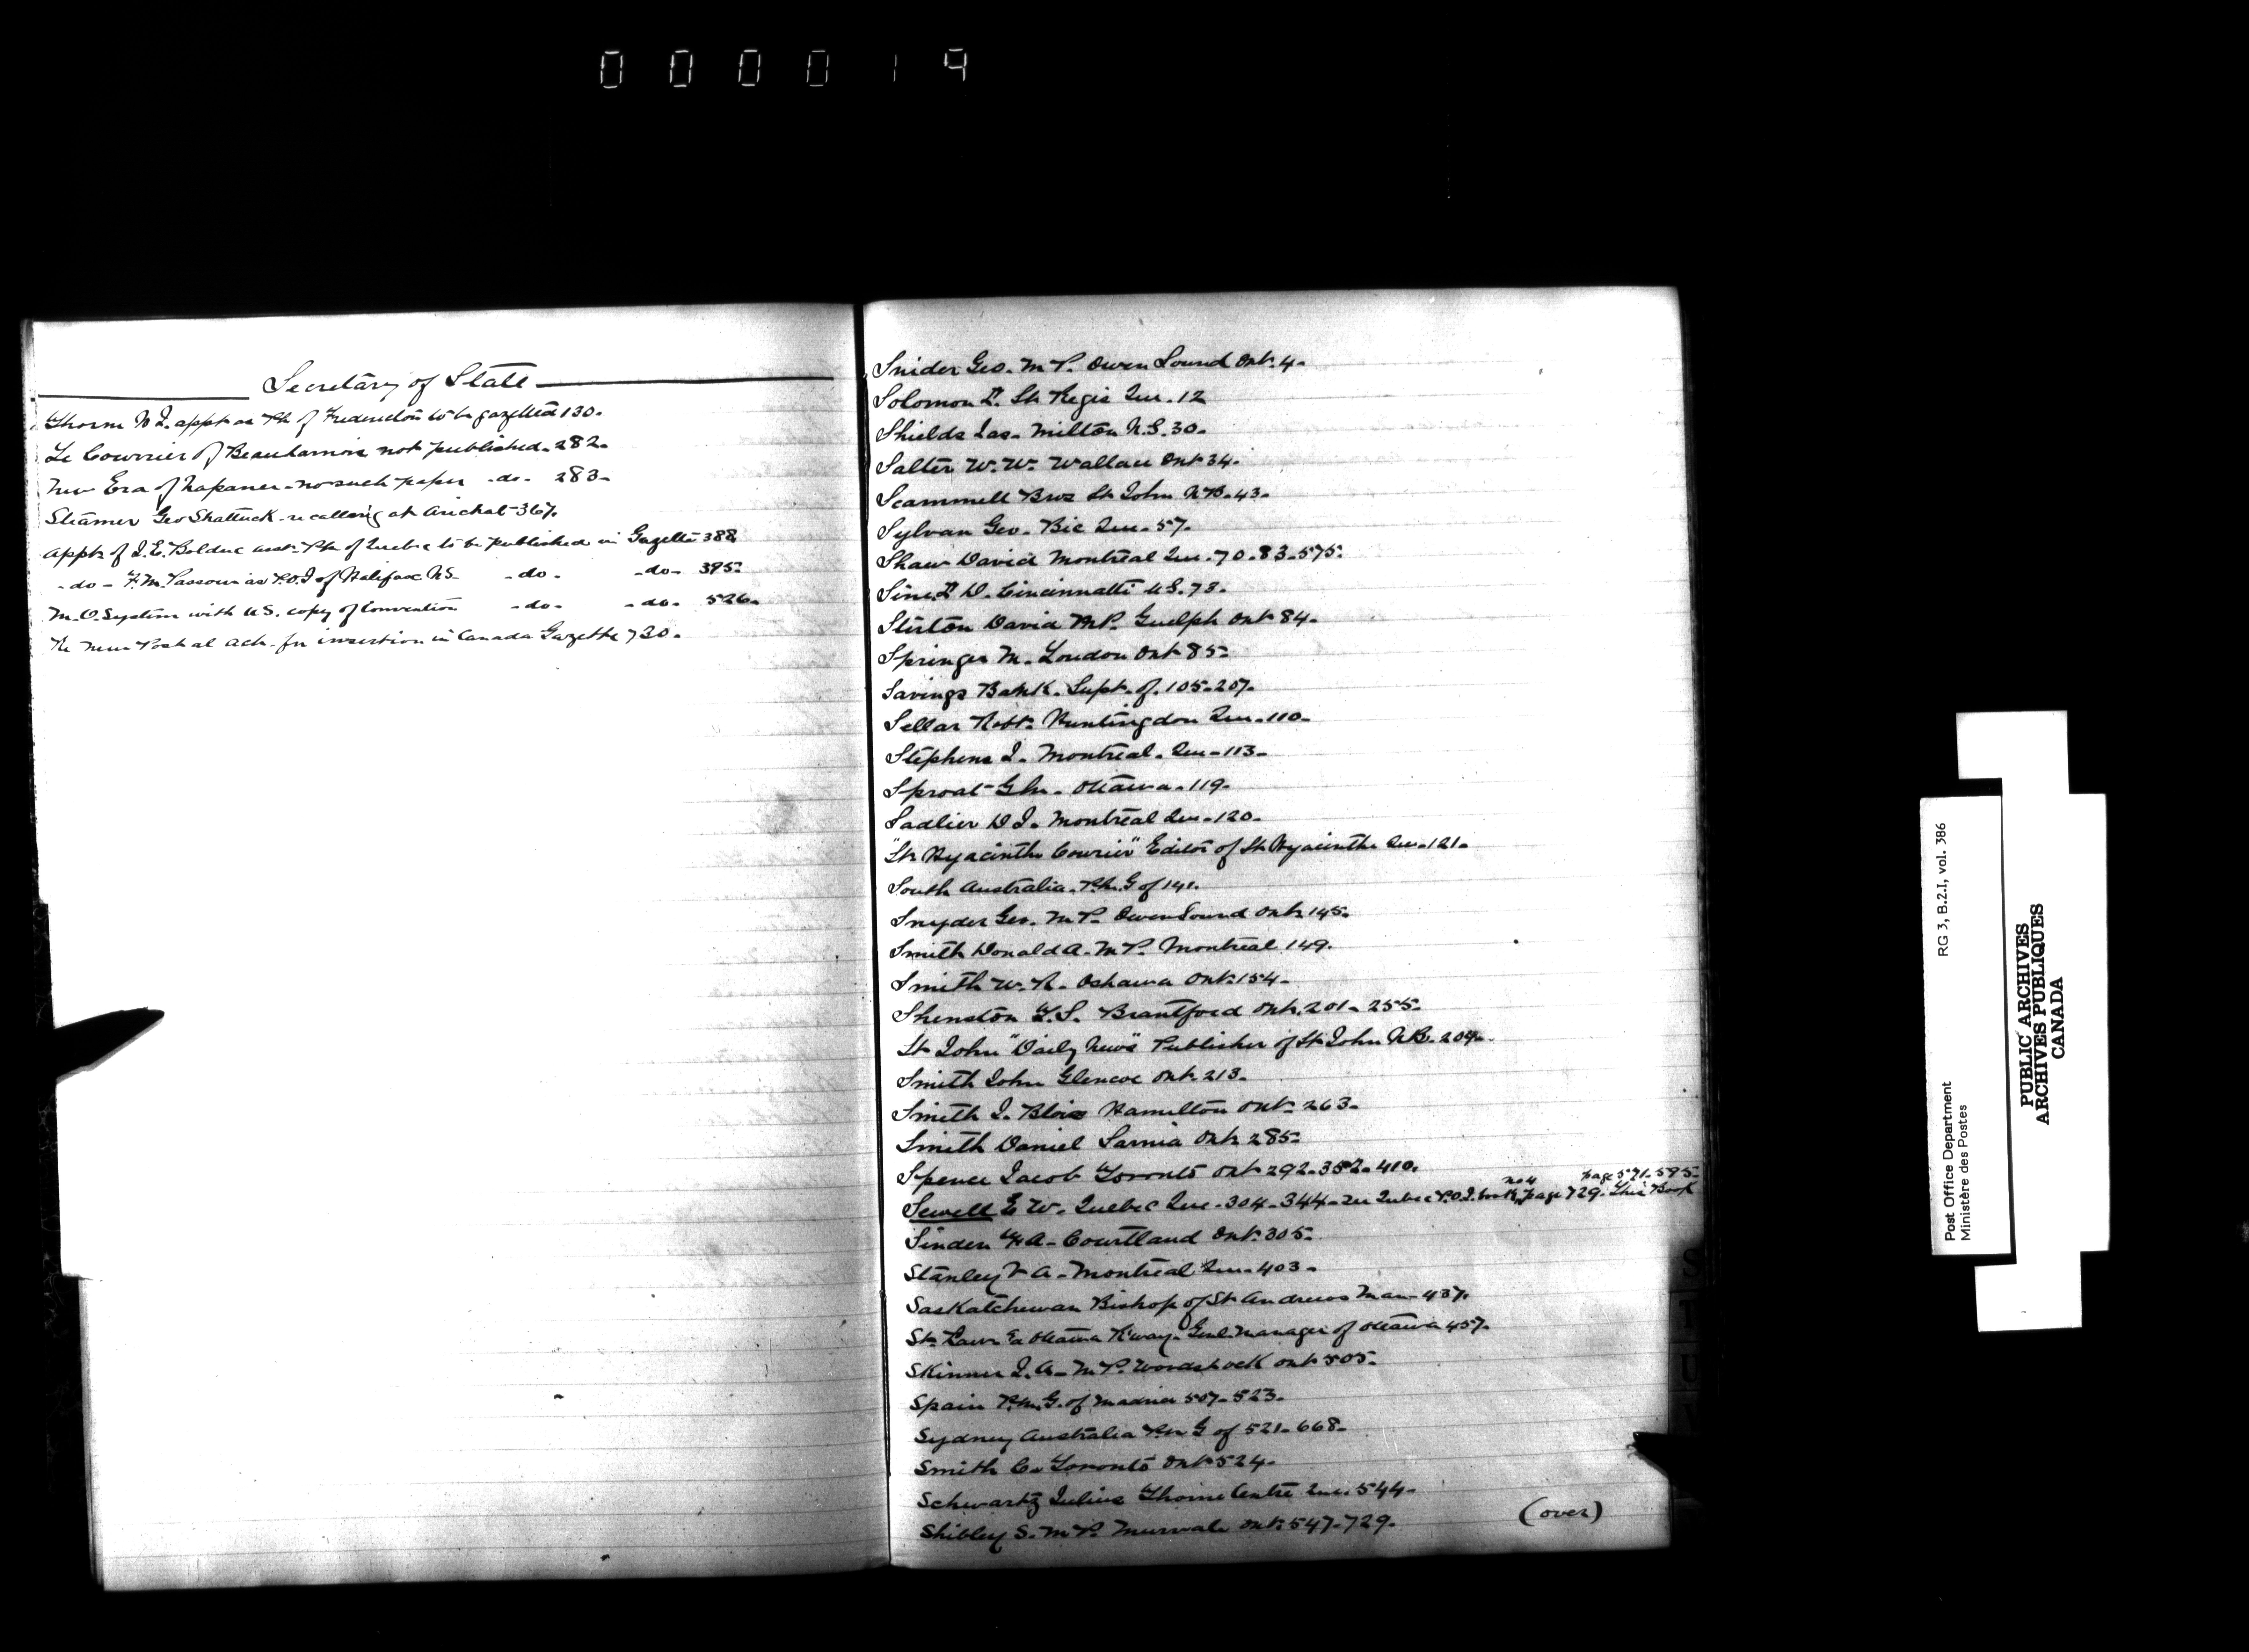 000019
Secretary of State
Thorne N I. appt as PM of Fredericton to be gazetted 130.
Le Courrier of Beauharnois not published. 282.
New Era of Napanee - no such paper - do - 283.
Steamer Geo Shattuck - re calling at Arichat 367.
Appt of J. E. Bolduc asst. PM of Quebec to be published in Gazette 388
- do - F. M. Passow as P.O.I of Halifax NS - do - - do - 395.
M.O. System with US. copy of Convention - do - - do - 526.
Re New Postal Act - for insertion in Canada Gazette 730.
Snider Geo. M P. Owen Sound Ont. 4.
Solomon L. St Regis Que. 12
Shields Jas. Milton N.S. 30.
Salter W. W. Wallace Ont 34.
Scammell Bros St John N.B. 43.
Sylvan Geo. Bic Que. 57.
Shaw David Montreal Que. 70. 83. 575.
Sine L D. Cincinnatti U.S. 73.
Stirton David M.P. Guelph Ont 84.
Springer M. London Ont 85.
Savings Bank. Supt. of. 105. 207.
Sellar Robt. Huntingdon Que. 110.
Stephens J. Montreal. Que. 113.
Sproat G M. Ottawa. 119.
Sadlier D J. Montreal Que. 120.
"St Hyacinthe Courier" Editor of St Hyacinthe Que. 121.
South Australia. P.M.G of 141.
Snyder Geo. M.P. Owen Sound Ont. 145.
Smith Donald A. M P. Montreal 149.
Smith W. R. Oshawa Ont. 154.
Shenston T. S. Brantford Ont. 201. 255.
St John "Daily News" Publisher of St John N.B. 204.
Smith John Glencoe Ont. 213.
Smith J. Blois Hamilton Ont. 263.
Smith Daniel Sarnia Ont. 285.
Spence Jacob Toronto Ont 292. 352. 410.
no 4 page 571. 595.
Sewell E W. Quebec Que. 304. 344. See Quebec P.O.I. book, page 729. This Book
Sinden A. Courtland Ont. 305.
Stanley V A. Montreal Que. 403.
Saskatchewan Bishop of St Andrews Man. 437.
St. Lawr & Ottawa R'way. Genl. Manager of Ottawa 457.
Skinner J. A. M.P. Woodstock Ont 505.
Spain P.M.G. of Madrid 507. 523.
Sydney Australia P.M G of 521. 668.
Smith C. Toronto Ont 524.
Schwartz Julius Thorne Centre Que. 544.
Shibley S. M P. Murvale Ont. 547. 729.
(over)
Post Office Department
Ministère des Postes
RG 3, B.2.I, vol. 386
PUBLIC ARCHIVES
ARCHIVES PUBLIQUES
CANADA